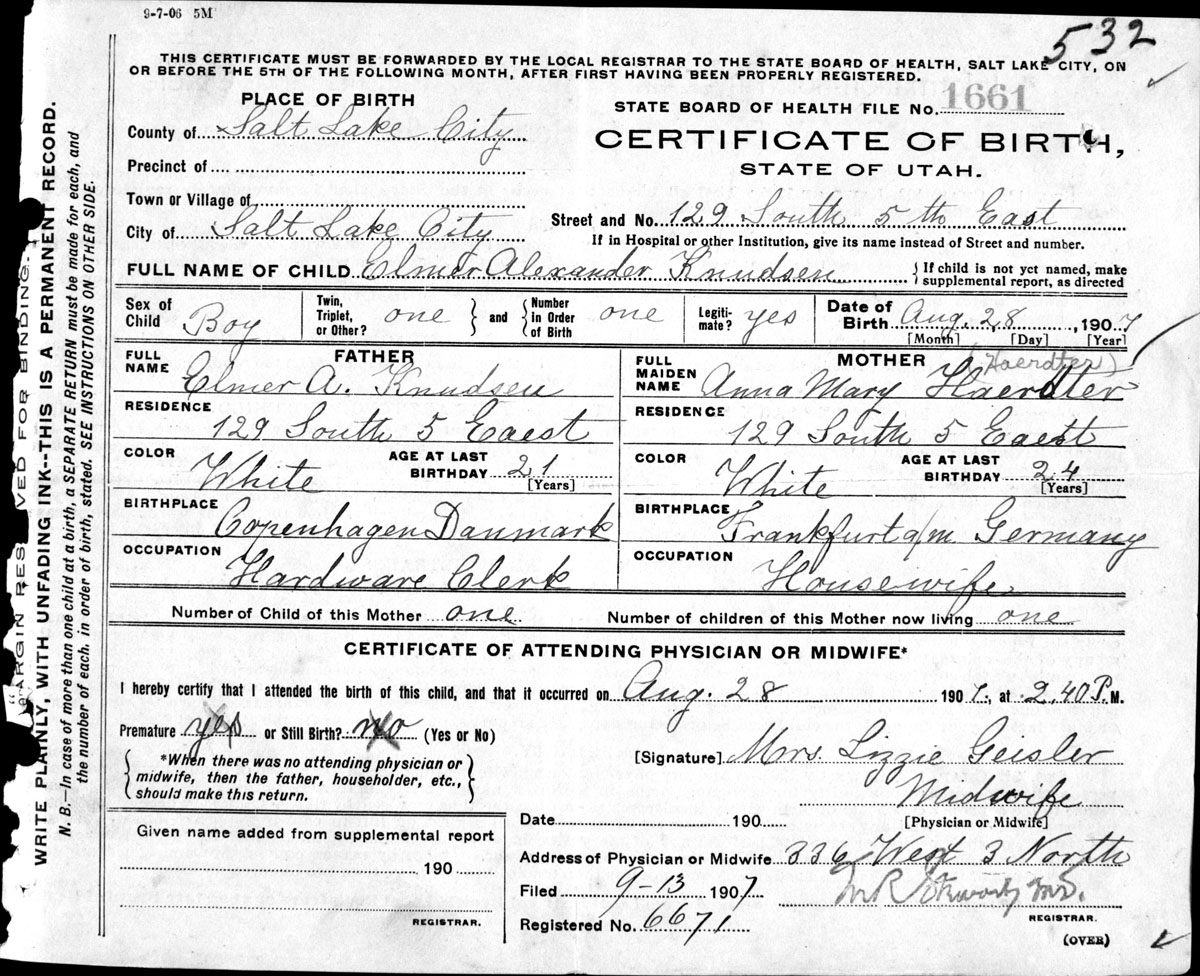 9-7-06 5M
532
THIS CERTIFICATE MUST BE FORWARDED BY THE LOCAL REGISTRAR TO THE STATE BOARD OF HEALTH, SALT LAKE CITY, ON
OR BEFORE THE 5TH OF THE FOLLOWING MONTH, AFTER FIRST HAVING BEEN PROPERLY REGISTERED.
PLACE OF BIRTH
County of Salt Lake City
Precinct of
Town or Village of
City of Salt Lake City
STATE BOARD OF HEALTH FILE No. 1661
CERTIFICATE OF BIRTH,
STATE OF UTAH.
Street and No. 129 South 5th East
If in Hospital or other Institution, give its name instead of Street and number.
FULL NAME OF CHILD Elmer Alexander Knudsen { If child is not yet named, make
supplemental report, as directed
Sex of Child Boy
Twin, Triplet, or Other? one } and { Number in Order of Birth one
Legiti-mate? yes
Date of Birth Aug. 28, 1907
[Month] [Day] [Year]
FATHER
FULL NAME Elmer A. Knudsen
RESIDENCE
129 South 5 Eaest
COLOR White AGE AT LAST BIRTHDAY 21
[Years]
BIRTHPLACE
Copenhagen Danmark
OCCUPATION
Hardware Clerk
MOTHER (Haerdter)
FULL MAIDEN NAME Anna Mary Haerdter
RESIDENCE
129 South 5 Eaest
COLOR White AGE AT LAST BIRTHDAY 24
[Years]
BIRTHPLACE
Frankfurt a/m. Germany
OCCUPATION
Housewife
Number of Child of this Mother one Number of children of this Mother now living one
CERTIFICATE OF ATTENDING PHYSICIAN OR MIDWIFE*
I hereby certify that I attended the birth of this child, and that it occurred on Aug. 28 1907, at 2,40 P. M.
Premature yes or Still Birth? no (Yes or No)
{ *When there was no attending physician or
midwife, then the father, householder, etc.,
should make this return. }
[Signature] Mrs. Lizzie Geisler
Midwife
[Physician or Midwife]
Date 190
Address of Physician or Midwife 336 West 3 North
Filed 9-13 1907
REGISTRAR.
Registered No. 6671
(OVER)
Given name added from supplemental report
190
REGISTRAR.
MARGIN RESERVED FOR BINDING.
WRITE PLAINLY, WITH UNFADING INK--THIS IS A PERMANENT RECORD.
N. B.--In case of more than one child at a birth, a SEPARATE RETURN must be made for each, and
the number of each, in order of birth, stated. SEE INSTRUCTIONS ON OTHER SIDE.